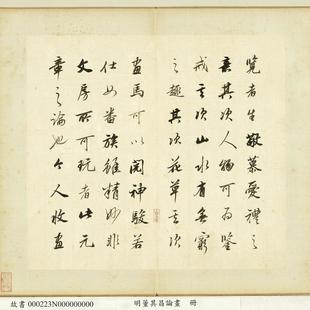 覽者生敬慕愛禮之
意其次人物可為鑒
戒其次山水有無窮
之趣其次花草其次
畫馬可以閱神駿若
仕女番族雖精妙非
文房所可玩者此元
章之論也今人收畫
故書 000223N000000000
明董其昌論畫 冊